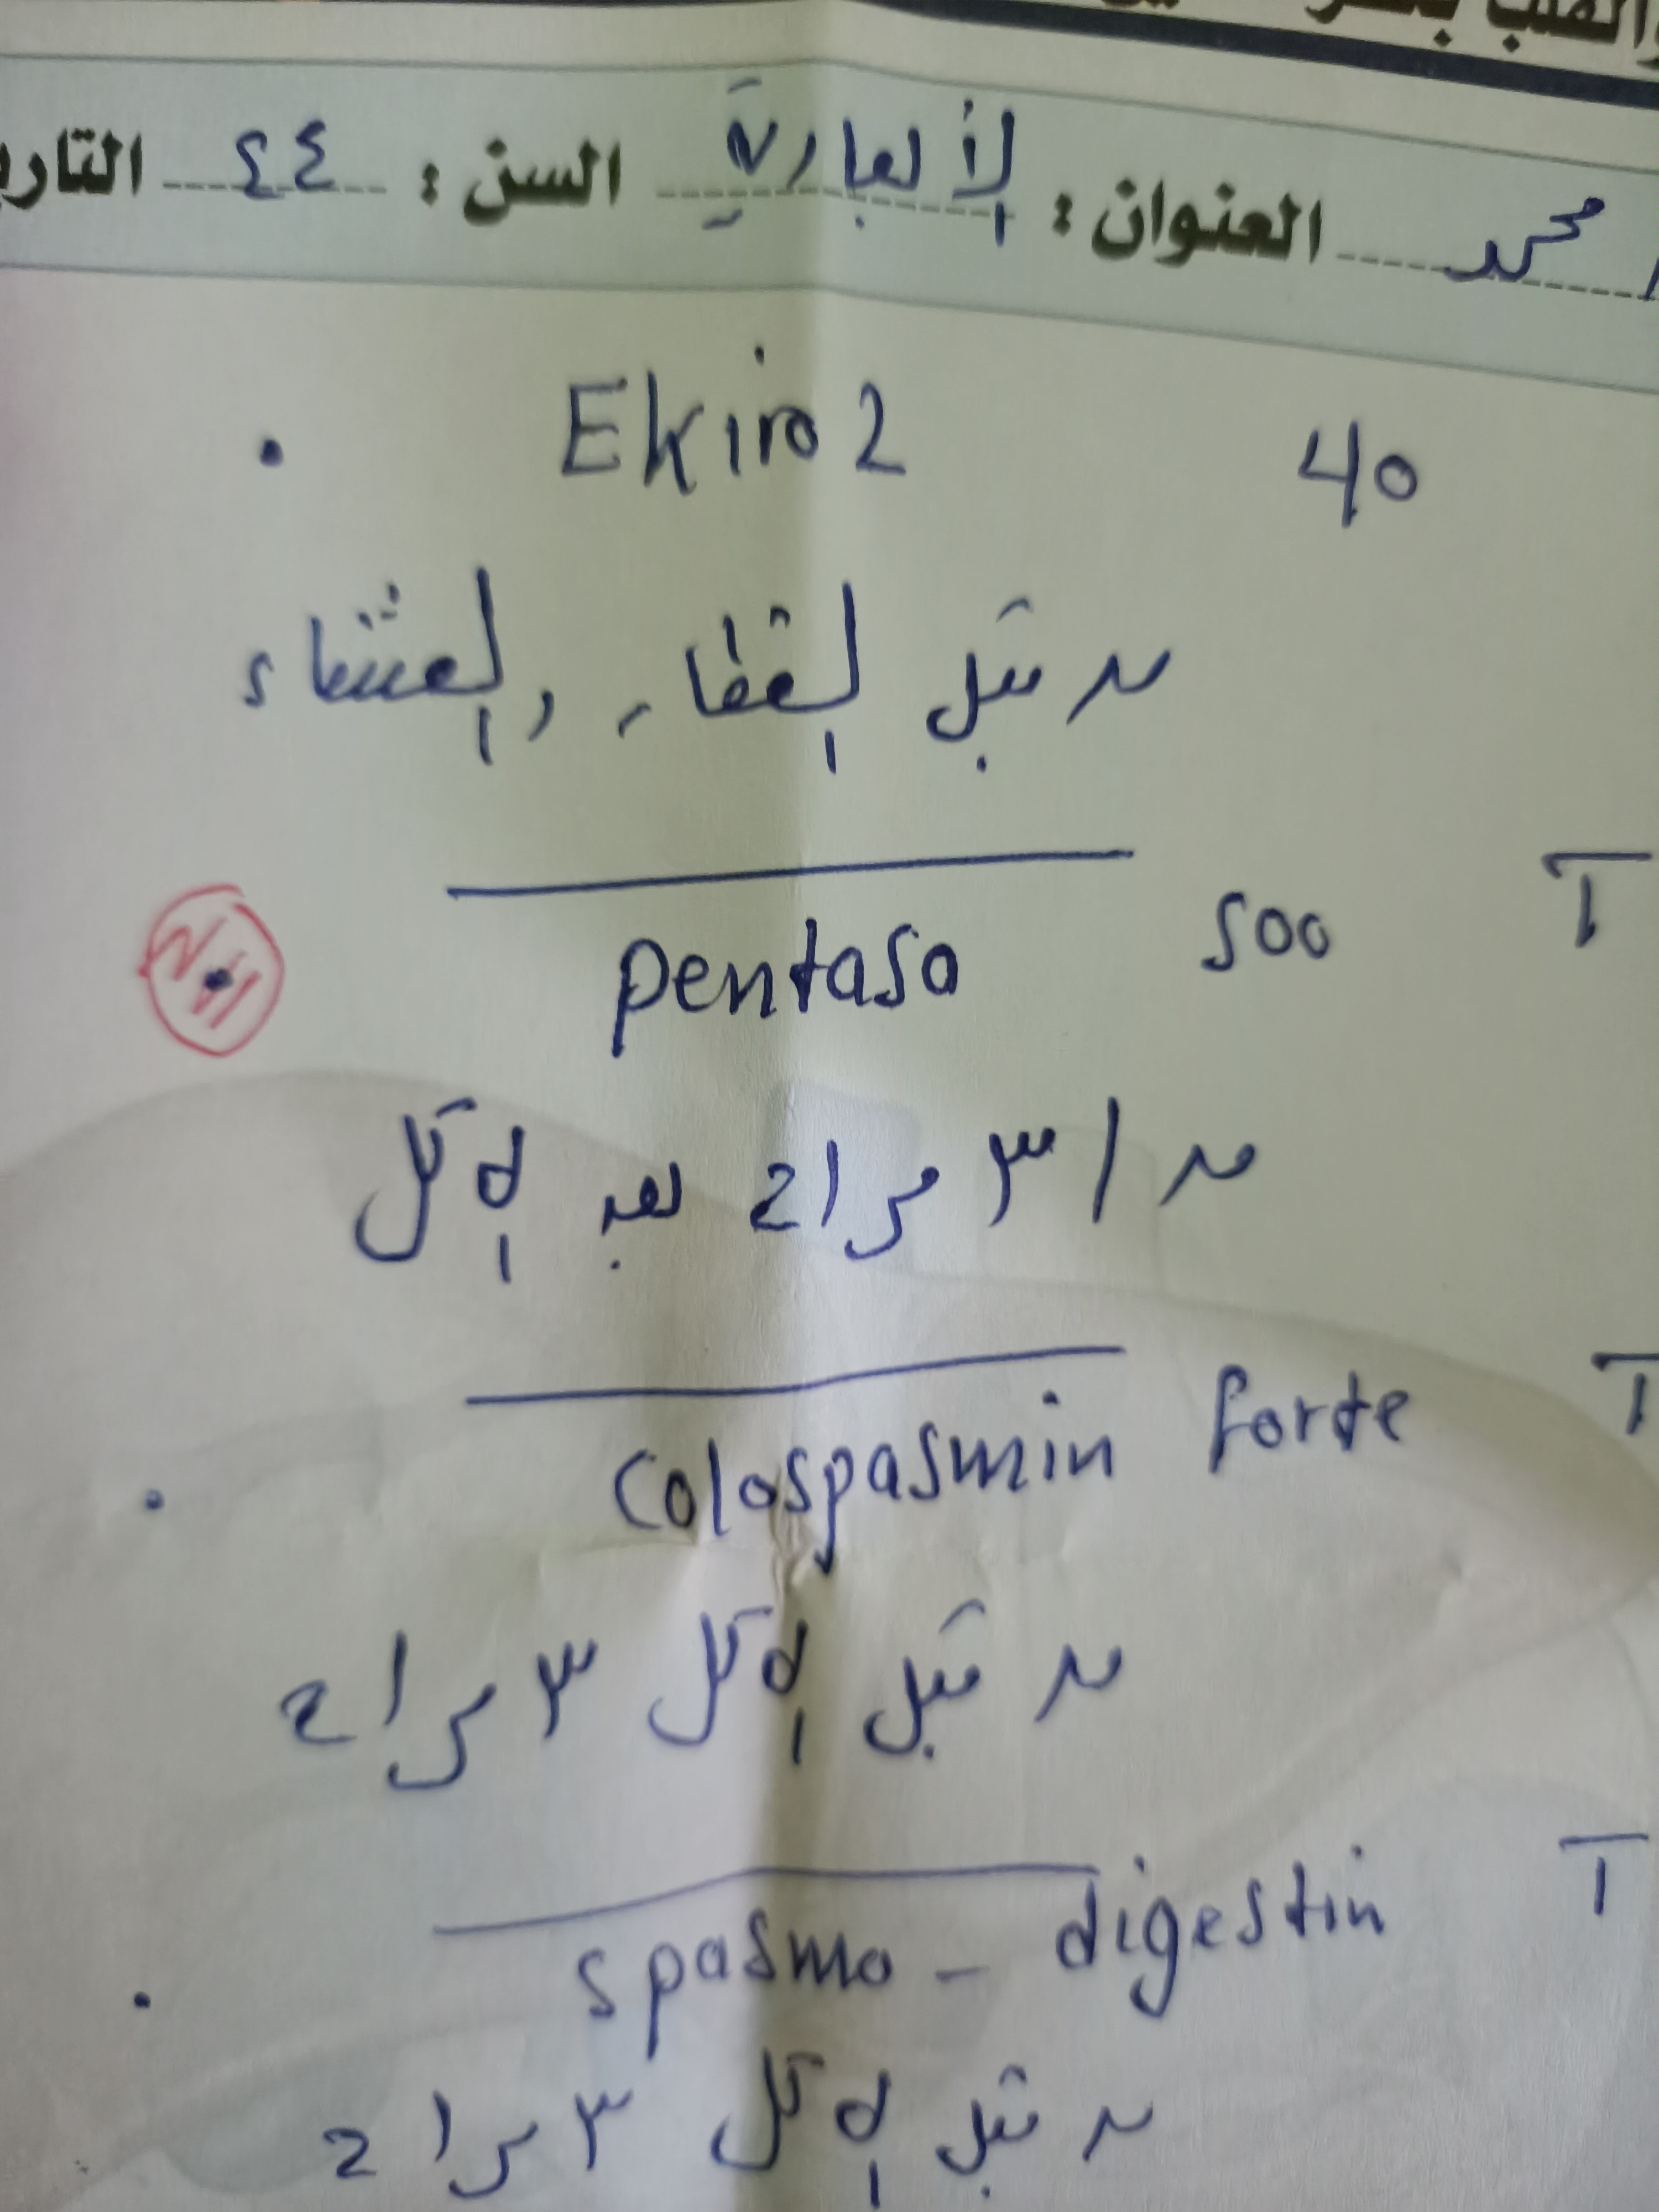 محمد العنوان: الأنبارية السن: ٤٤ التاريـ
Ekiroz 40
قبل الفطار والعشاء
pentasa 500 T
١ ٣ مرات بعد الأكل
Colospasmin forte T
قبل الأكل ٣ مرات
spasmo - digestin T
قبل الأكل ٣ مرات